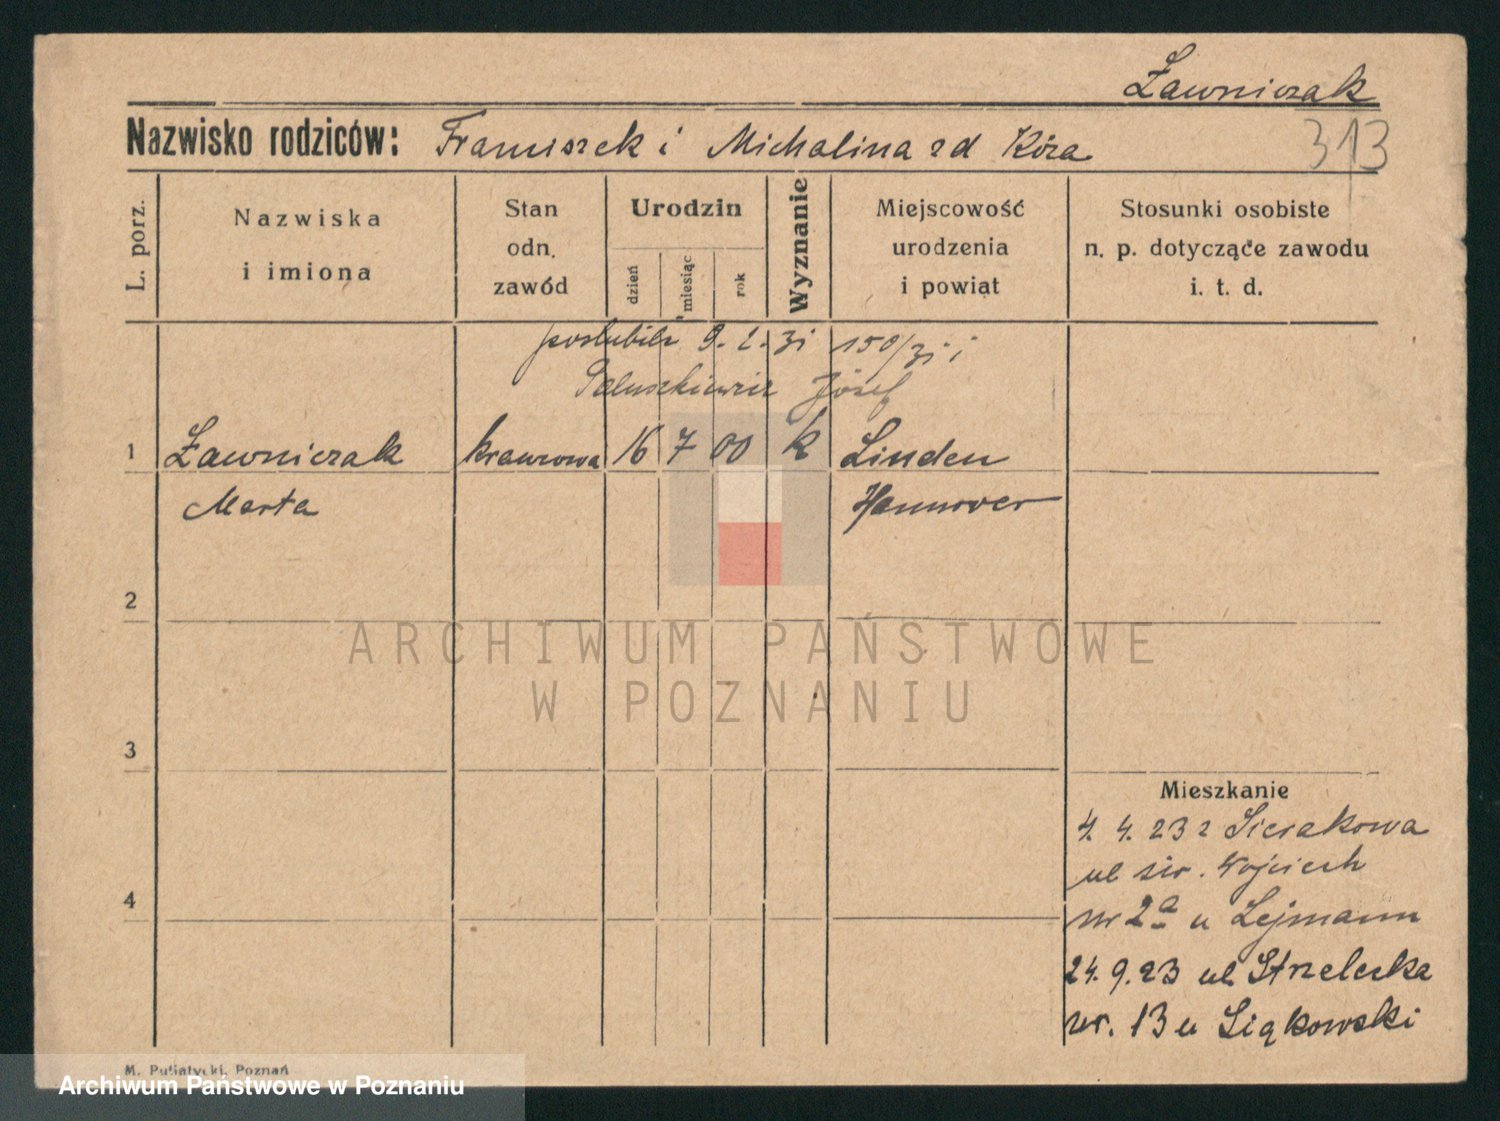 Ławniczak
Nazwisko rodziców: Franciszek i Michalina zd Kóza
313
L. porz.
Nazwiska
i imiona
Stan
odn.
zawód
Urodzin
dzień
miesiąc
rok
Wyznanie
Miejscowość
urodzenia
i powiat
Stosunki osobiste
n. p. dotyczące zawodu
i. t. d.
poślubiła 9. 2. 31 150/31 i
Józef
1 Ławniczak krawcowa 16 7 00 k Linden
Marta Hannover
2
3
4
Mieszkanie
4. 4. 23 z Sierakowa
ul św. Wojciech
nr 2a u Lejmann
24. 9. 23 ul Strzelecka
nr. 13 u Siąkowski
M. Putiatycki, Poznań
ARCHIWUM PAŃSTWOWE
W POZNANIU
Archiwum Państwowe w Poznaniu